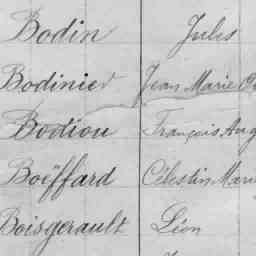 Bodin Jules
Bodinier Jean Marie
Bodiou François Aug
Boëffard Célestin Marie
Boisgerault Léon